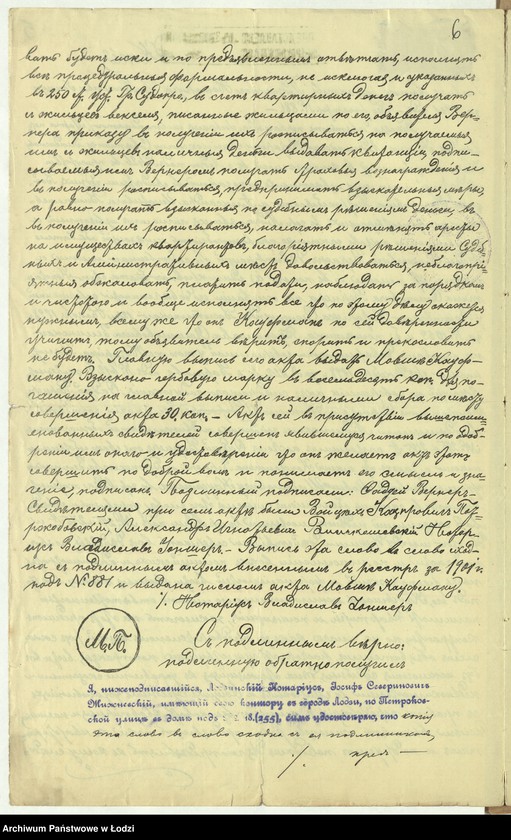 6
вать будетъ иски и по предъявленнымъ отвѣтать, исполнять
все процедуральныя формальности, не исключая и указанныхъ
въ 250 ст. Уст. Гр. Судопр., въ счетъ квартирныхъ денегъ получать
съ жильцевъ векселя, писанные жильцами на его, объявителя Вер-
нера приказу въ полученіи ихъ росписываться по получаемыя
имъ съ жильцевъ наличныя деньги выдавать квитанціи, подпи-
сываемыя имъ Вернеромъ получать страховыя вознагражденія и
въ полученіи росписываться, предпринимать взыскательныя мѣры,
а равно получать взысканныя по судебнымъ рѣшеніямъ деньги, въ
въ полученіи ихъ росписываться, налагать и отмѣнять аресты
на имуществахъ квартирантовъ, благопріятными рѣшеніями Судеб-
ныхъ и Административныхъ мѣстъ довольствоваться, неблагопрі-
ятныя обжаловать, платить подати, наблюдать за порядкомъ
и чистотою и вообще исполнять все что по этому дѣлу окажется
нужнымъ, всему же что онъ Кауфманъ по сей довѣренности
учинитъ, тому объявитель вѣритъ, спорить и прекословить
не будетъ. Главную выпись сего акта выдать Мовшѣ Кауф-
ману. Взыскано гербовую марку въ восемьдесятъ коп. для по-
гашенія на главной выписи и наличными сбора по мѣсту
совершенія акта 30. коп. — Актъ сей въ присутствіи вышепоиме-
нованныхъ свидѣтелей совершенъ явившемуся читанъ и по одоб-
реніи имъ онаго и удостовѣреніи что онъ желаетъ актъ этотъ
совершить по доброй волѣ и понимаетъ его смыслъ и зна-
ченіе, подписанъ. Подлинный подписали: Фадѣй Вернеръ.
Свидѣтелями при семъ актѣ были Войцѣхъ
Александръ Игнатьевичъ Нотарі-
усъ Владиславъ Іоншеръ. — Выпись эта слово въ слово сход-
на съ подлиннымъ актомъ внесеннымъ въ реестръ за 1901 г.
подъ № 881 и выдана Мовшѣ Кауфману.
/. Нотаріусъ Владиславъ Іоншеръ
М.П.
Съ подлиннымъ вѣрно:
подлинную обратно получилъ
Я, нижеподписавшійся, Лодзинскій Нотаріусъ, Іосифъ Севериновичъ
Жижневскій, имѣющій свою контору въ городѣ Лодзи, по Петроков-
ской улицѣ въ домѣ подъ № 18.(255), симъ удостовѣряю, что копія
эта слово въ слово сходна съ ея подлинникомъ,
/. пред—
Archiwum Państwowe w Łodzi